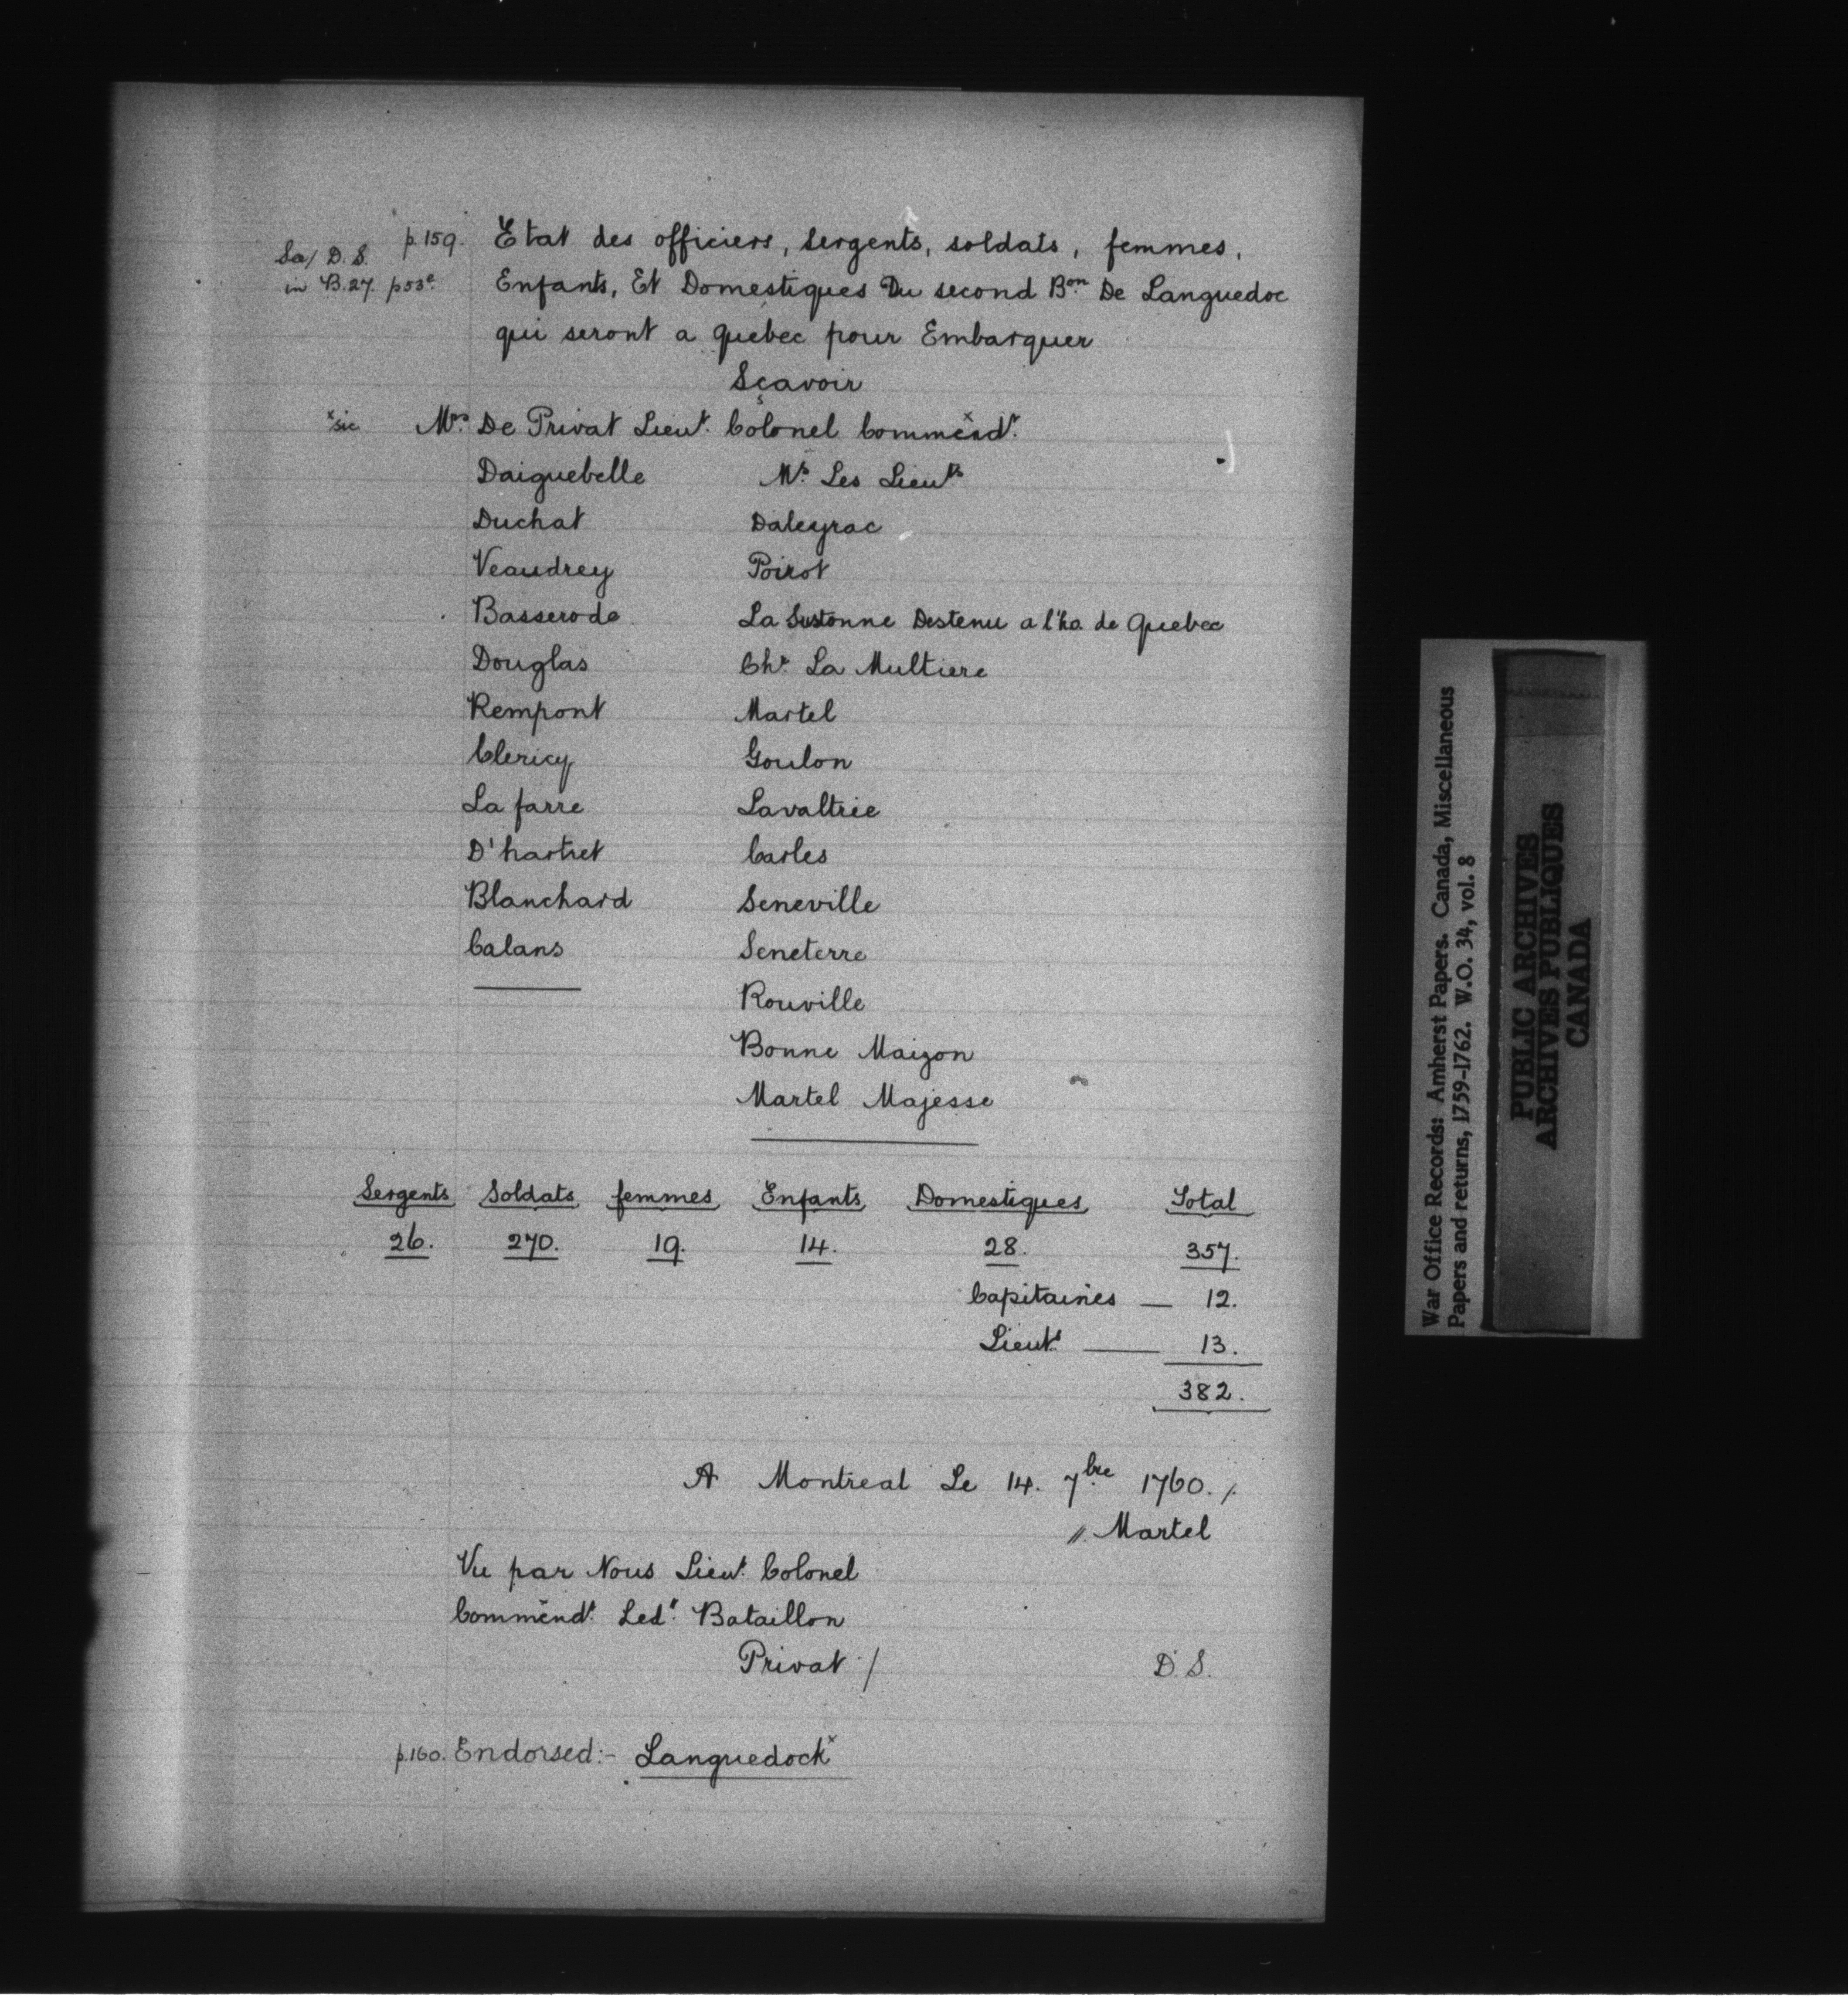 p.159. Etat des officiers, sergents, soldats, femmes,
Sa/ D.S.
in B.27. p53e.
Enfants, Et Domestiques Du second Bon De Languedoc
qui seront a quebec pour Embarquer
Sçavoir
*sic Mrs De Privat Lieut. Colonel Commĕndt.
Daiguebelle Mrs Les Lieuts
Duchat Daleyrac
Veaudrey Poirot
Basserode La Sustonne Destenu a l'ho. de Quebec
Douglas Chr La Multiere
Rempont Martel
Clericy Goulon
La farre Lavaltrie
D'hartret Carles
Blanchard Seneville
Calans Seneterre
Rouville
Bonne Maizon
Martel Majesse
Sergents Soldats femmes Enfants Domestiques Total
26. 270. 19. 14. 28. 357.
Capitaines — 12.
Lieuts — 13.
382.
A Montreal Le 14. 7bre 1760. /.
//. Martel
Vu par Nous Lieut. Colonel
Commĕndt. Ledt. Bataillon
Privat /
D.S.
p.160. Endorsed:- Languedock*
War Office Records: Amherst Papers. Canada, Miscellaneous
Papers and returns, 1759-1762. W.O. 34, vol. 8
PUBLIC ARCHIVES
ARCHIVES PUBLIQUES
CANADA